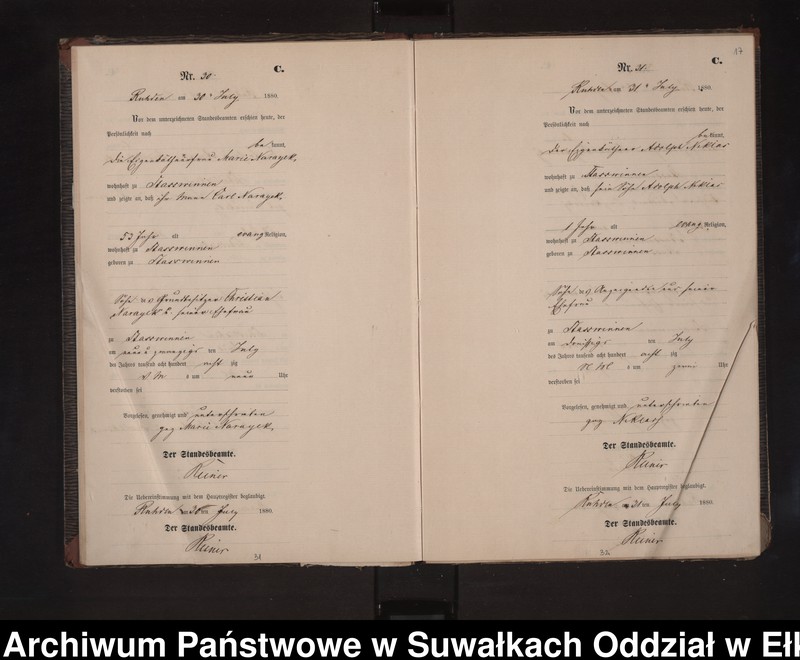 C.
Nr. 30.
30 July 1880.
Vor dem unterzeichneten Standesbeamten erschien heute, der
Persönlichkeit nach
bekannt,
Marie Narayek,
wohnhaft zu Stasswinnen
und zeigte an, daß ihr Mann Carl Narayek,
53 Jahr alt evang Religion,
wohnhaft zu Stasswinnen
geboren zu Stasswinnen
Sohn des Grundbesitzer Christian
Narayek u. seiner Ehefrau
zu Stasswinnen
am neun zwanzigs ten July
des Jahres tausend acht hundert acht zig
um neun Uhr
verstorben sei
Vorgelesen, genehmigt und unterschrieben
gez Marie Narayek.
Der Standesbeamte.
Reiner
Die Uebereinstimmung mit dem Hauptregister beglaubigt.
30 ten July 1880.
Der Standesbeamte.
Reiner
31
17
C.
Nr. 31.
am 31 July 1880.
Vor dem unterzeichneten Standesbeamten erschien heute, der
Persönlichkeit nach
bekannt,
Adolph Niklas
wohnhaft zu Stasswinnen
und zeigte an, daß sein Sohn Adolph Niklas
1 Jahr alt evang. Religion,
wohnhaft zu Stasswinnen
geboren zu Stasswinnen
Sohn des seiner
Ehefrau
zu Stasswinnen
am dreißigs ten July
des Jahres tausend acht hundert acht zig
um Uhr
verstorben sei
Vorgelesen, genehmigt und unterschrieben
gez Niklas
Der Standesbeamte.
Reiner
Die Uebereinstimmung mit dem Hauptregister beglaubigt.
31 ten July 1880.
Der Standesbeamte.
Reiner
32
Archiwum Państwowe w Suwałkach Oddział w Ełk